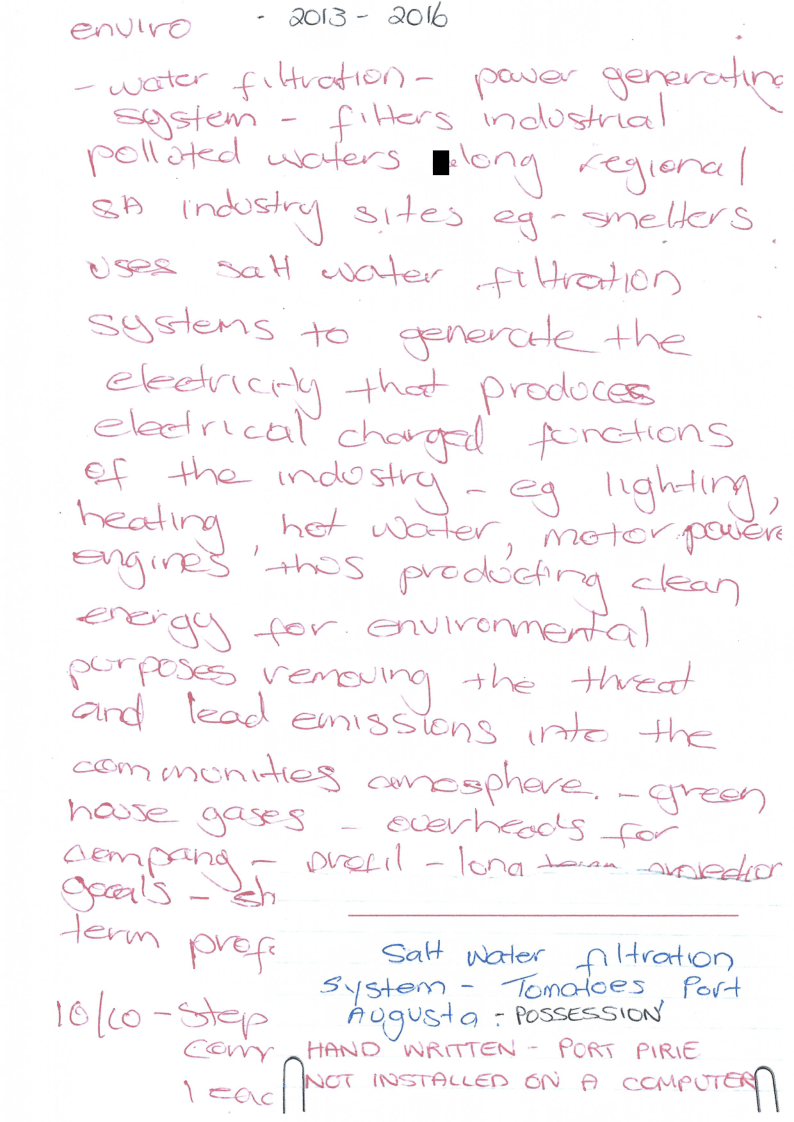 enviro - 2013 - 2016
- water filtration - power generating
system - filters industrial
polluted waters along regional
SA industry sites eg - smelters
uses salt water filtration
systems to generate the
electricity that produces
electrical charged functions
of the industry - eg lighting,
heating, hot water, motor powere
engines thus producting clean
energy for environmental
purposes removing the threat
and lead emissions into the
communities amosphere. - green
house gases - overheads for
company - profit - long term projection
goals - sh
term prof
10/10 - Step
com
1 eac
Salt water filtration
System - Tomatoes, Port
Augusta : - POSSESSION
HAND WRITTEN - PORT PIRIE
NOT INSTALLED ON A COMPUTER